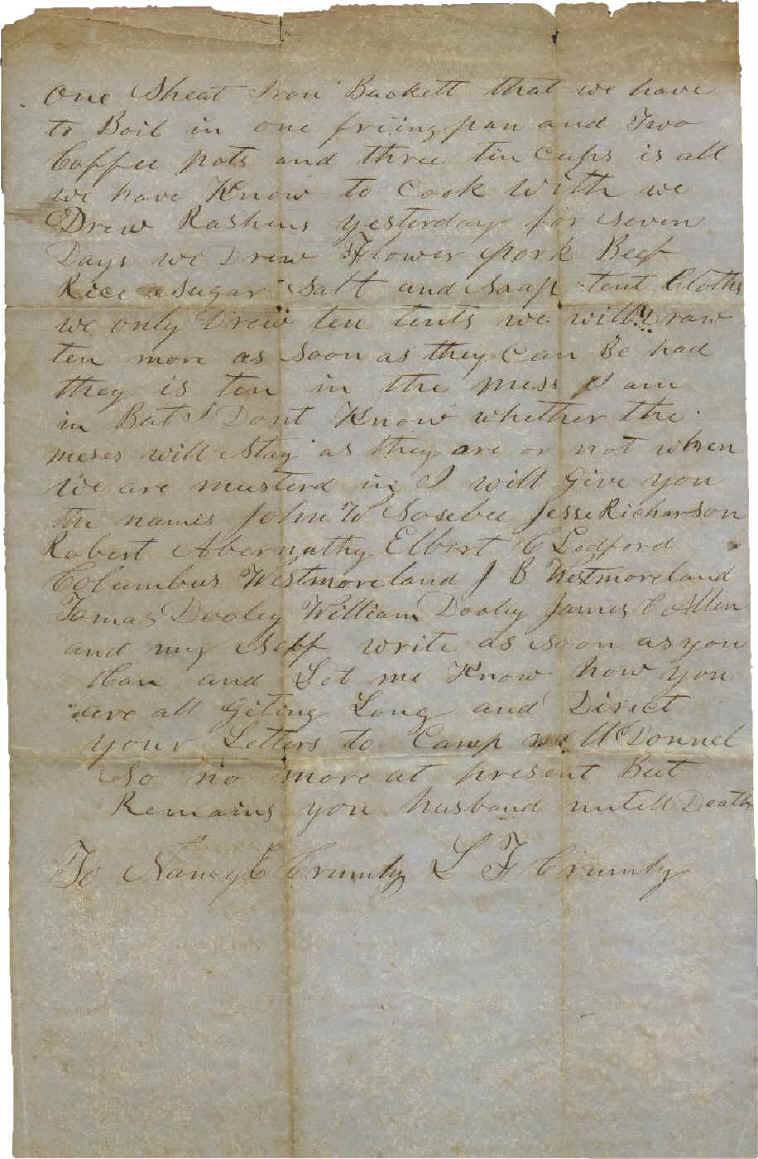 one Sheat Iron Buckett that we have
to Boil in one friing pan and Two
Coffee pots and three tin Cups is all
we have Know to Cook with we
Drew Rashens yesterday for seven
Days we Drew Flower Pork Beef
Rice Sugar Salt and Soap tent Cloths
we only Drew ten tents we will Draw
ten more as Soon as they Can Be had
they is ten in the mess I am
in But I Dont Know whether the
meses will Stay as they are or not when
we are musterd in I will give you
the names John W Sosebee Jesse Richardson
Robert Abernathy Elbert C Ledford
Columbus Westmoreland J B Westmoreland
Tomas Dooley William Dooley James C Allen
and my Self write as soon as you
Can and Let me Know how you
are all giting Long and Direct
your Letters to Camp McDonnel
So no more at present But
Remains you husband untill Death
To Nancy E Crumby L F Crumby